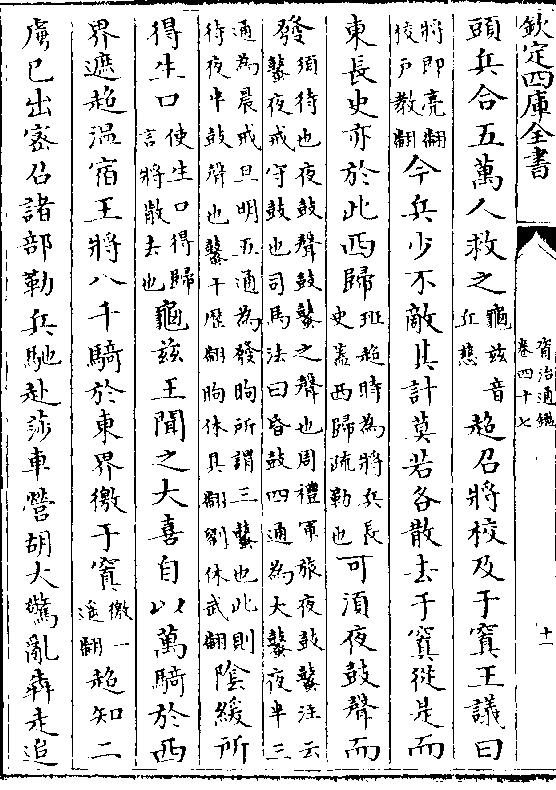 欽定四庫全書
資治通鑑
卷四十七
十一
頭兵合五萬人救之龜茲音丘慈超召將校及于窴王議曰
將即亮翻校戶教翻今兵少不敵其計莫若各散去于窴從是而
東長史亦於此西歸班超時為將兵長史蓋西歸疏勒也可須夜鼓聲而
發須待也夜鼓聲鼓鼜之聲也周禮軍旅夜鼓鼜注云鼜夜戒守鼓也司馬法曰昏鼓四通為大鼜夜半三
通為晨戒旦明五通為發昫所謂三鼜也此則待夜半鼓聲也鼜干歷翻昫休具翻劉休武翻陰緩所
得生口使生口得歸言將散去也龜茲王聞之大喜自以萬騎於西
界遮超溫宿王將八千騎於東界徼于窴徼一遙翻超知二
虜已出密召諸部勒兵馳赴莎車營胡大驚亂犇走追